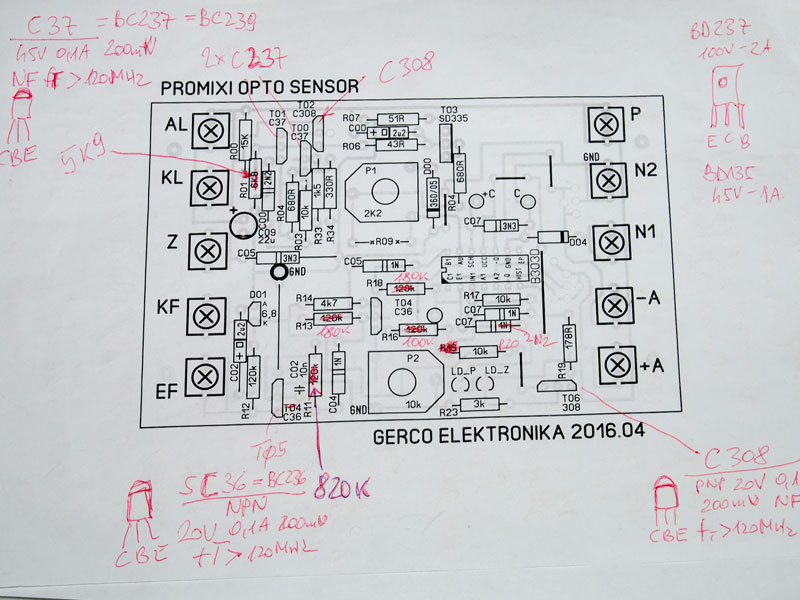 C37 = BC237 = BC239
45V 0,1A 200mW
NF fT > 120MHz
CBE
2xC237
C308
BD237
100V - 2A
E C B
BD135
45V - 1A
5K9
PROMIXI OPTO SENSOR
AL
KL
Z
KF
EF
P
N2
N1
-A
+A
GND
R00
15K
R01
6K8
2N2
C00
C09
22u
+
T01
C37
T00
C37
T02
C308
R04
680R
R03
10k
1k5
R33
330R
R34
R07
51R
C00
2u2
R06
43R
T03
SD335
P1
2K2
D00
360/05
R04
680R
+C
C
C07
3N3
D04
R09
C05
3N3
GND
C05
1N
B303D
C1 B1
E1 AU
IN1 SCH
A1 UCC
A2 -Q
Q GND
HIST EP
180K
R18
120k
R14
4k7
R13
120k
180K
T04
C36
R16
120k
100K
R17
10k
C07
1N
C07
1N
2N2
R15
R20
10k
178R
R19
D01
A
6,8
K
C02
2u2
R12
120k
C02
10n
T04
C36
R11
120k
C04
1N
GND
P2
10k
LD_P
LD_Z
R23
3k
T06
308
GERCO ELEKTRONIKA 2016.04
TØ5
820K
SC36 = BC236
NPN
20V 0,1A 200mW
fT > 120MHz
CBE
C308
PNP 20V 0,1
200mW NF
fT > 120MHz
CBE